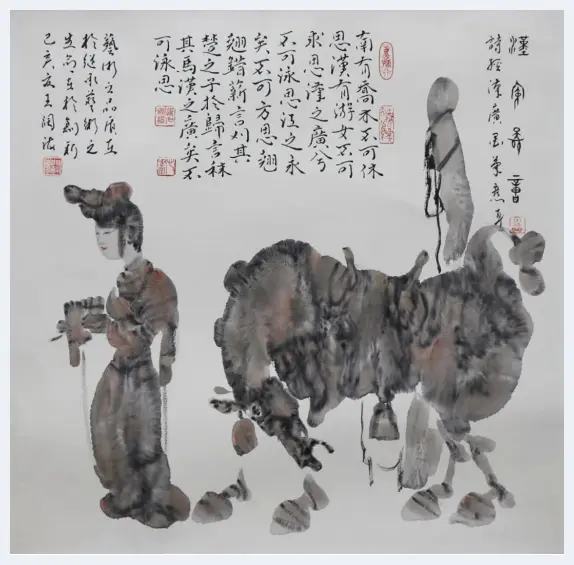 詩經漢廣
南有喬木不可休
思漢有游女不可
求思漢之廣兮
不可泳思江之永
矣不可方思翹
翹錯薪言刈其
楚之子於歸言秣
其馬漢之廣矣不
可泳思
藝術之品質在
於繼承藝術之
生命在於創新
己亥夏王闊海